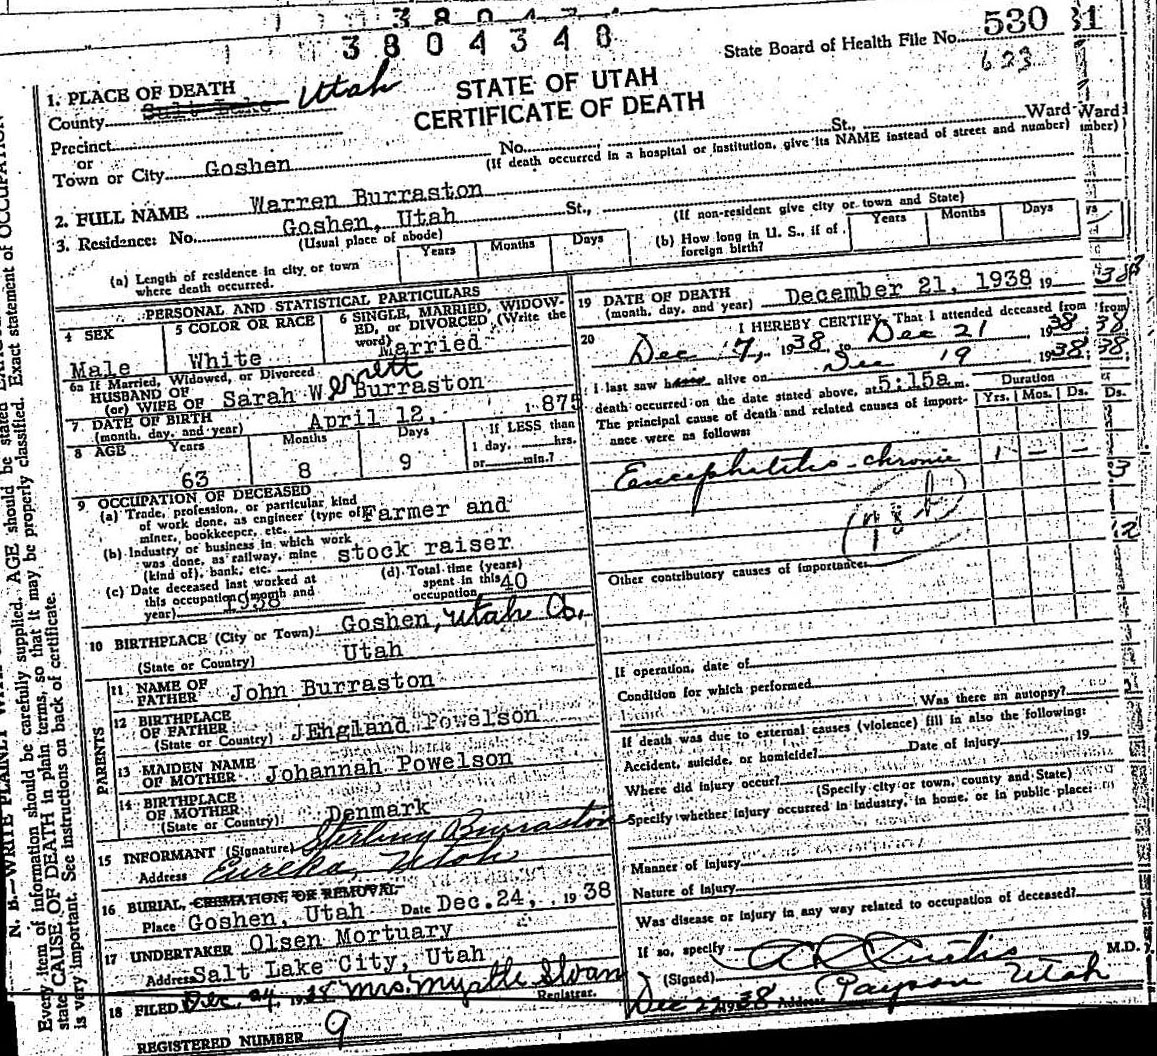 3804348
State Board of Health File No. 530
623
STATE OF UTAH
CERTIFICATE OF DEATH
1. PLACE OF DEATH
County Salt Lake Utah
Precinct
or
Town or City Goshen
No. St., Ward
(If death occurred in a hospital or institution, give its NAME instead of street and number)
2. FULL NAME Warren Burraston
3. Residence: No. Goshen, Utah St.,
(Usual place of abode)
(If non-resident give city or town and State)
(a) Length of residence in city or town where death occurred. Years Months Days
(b) How long in U. S., if of foreign birth? Years Months Days
PERSONAL AND STATISTICAL PARTICULARS
4 SEX Male
5 COLOR OR RACE White
6 SINGLE, MARRIED, WIDOWED, or DIVORCED (Write the word) Married
6a If Married, Widowed, or Divorced
HUSBAND OF
(or) WIFE OF Sarah W Burraston
7 DATE OF BIRTH
(month, day, and year) April 12, 1875
8 AGE Years 63 Months 8 Days 9
If LESS than
1 day, hrs.
or min.?
9 OCCUPATION OF DECEASED
(a) Trade, profession, or particular kind
of work done, as engineer (type of) Farmer and
miner, bookkeeper, etc.
(b) Industry or business in which work
was done, as railway, mine stock raiser
(kind of), bank, etc.
(c) Date deceased last worked at
this occupation (month and
year) 1938
(d) Total time (years)
spent in this
occupation 40
10 BIRTHPLACE (City or Town) Goshen, Utah Co.
(State or Country) Utah
PARENTS
11 NAME OF
FATHER John Burraston
12 BIRTHPLACE
OF FATHER
(State or Country) JEhgland Powelson
13 MAIDEN NAME
OF MOTHER Johannah Powelson
14 BIRTHPLACE
OF MOTHER
(State or Country) Denmark
15 INFORMANT (Signature) Sterling Burraston
Address Eureka, Utah
16 BURIAL, CREMATION, OR REMOVAL
Place Goshen, Utah Date Dec. 24, 1938
17 UNDERTAKER Olsen Mortuary
Address Salt Lake City, Utah
18 FILED Dec. 24 1938 Mrs. Myrtle Sloan
Registrar.
REGISTERED NUMBER 9
19 DATE OF DEATH
(month, day, and year) December 21, 1938 19
20 I HEREBY CERTIFY, That I attended deceased from
Dec 7, 1938, to Dec 21 1938
I last saw h alive on Dec 19 1938
death occurred on the date stated above, at 5:15a m.
The principal cause of death and related causes of importance were as follows:
Duration
Yrs. Mos. Ds.
Encephilitis - chronic 1 - -
(78b)
Other contributory causes of importance:
If operation, date of
Condition for which performed
Was there an autopsy?
If death was due to external causes (violence) fill in also the following:
Accident, suicide, or homicide? Date of injury 19
Where did injury occur?
(Specify city or town, county and State)
Specify whether injury occurred in industry, in home, or in public place:
Manner of Injury
Nature of Injury
Was disease or injury in any way related to occupation of deceased?
If so, specify
(Signed) A L Curtis M.D.
Dec 22 1938 Address Payson Utah
N. B.—WRITE PLAINLY
Every item of information should be carefully supplied. AGE should be stated
state CAUSE OF DEATH in plain terms, so that it may be properly classified. Exact statement of OCCUPATION
is very important. See instructions on back of certificate.